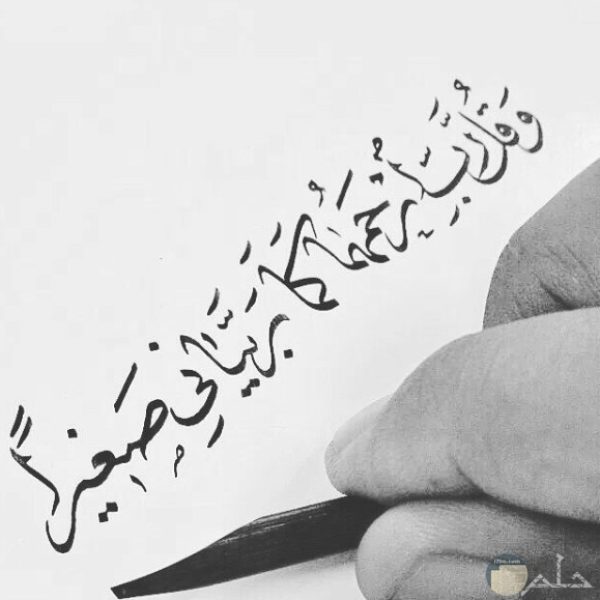 وَقُل رَّبِّ ارْحَمْهُمَا كَمَا رَبَّيَانِي صَغِيرًا
حلم